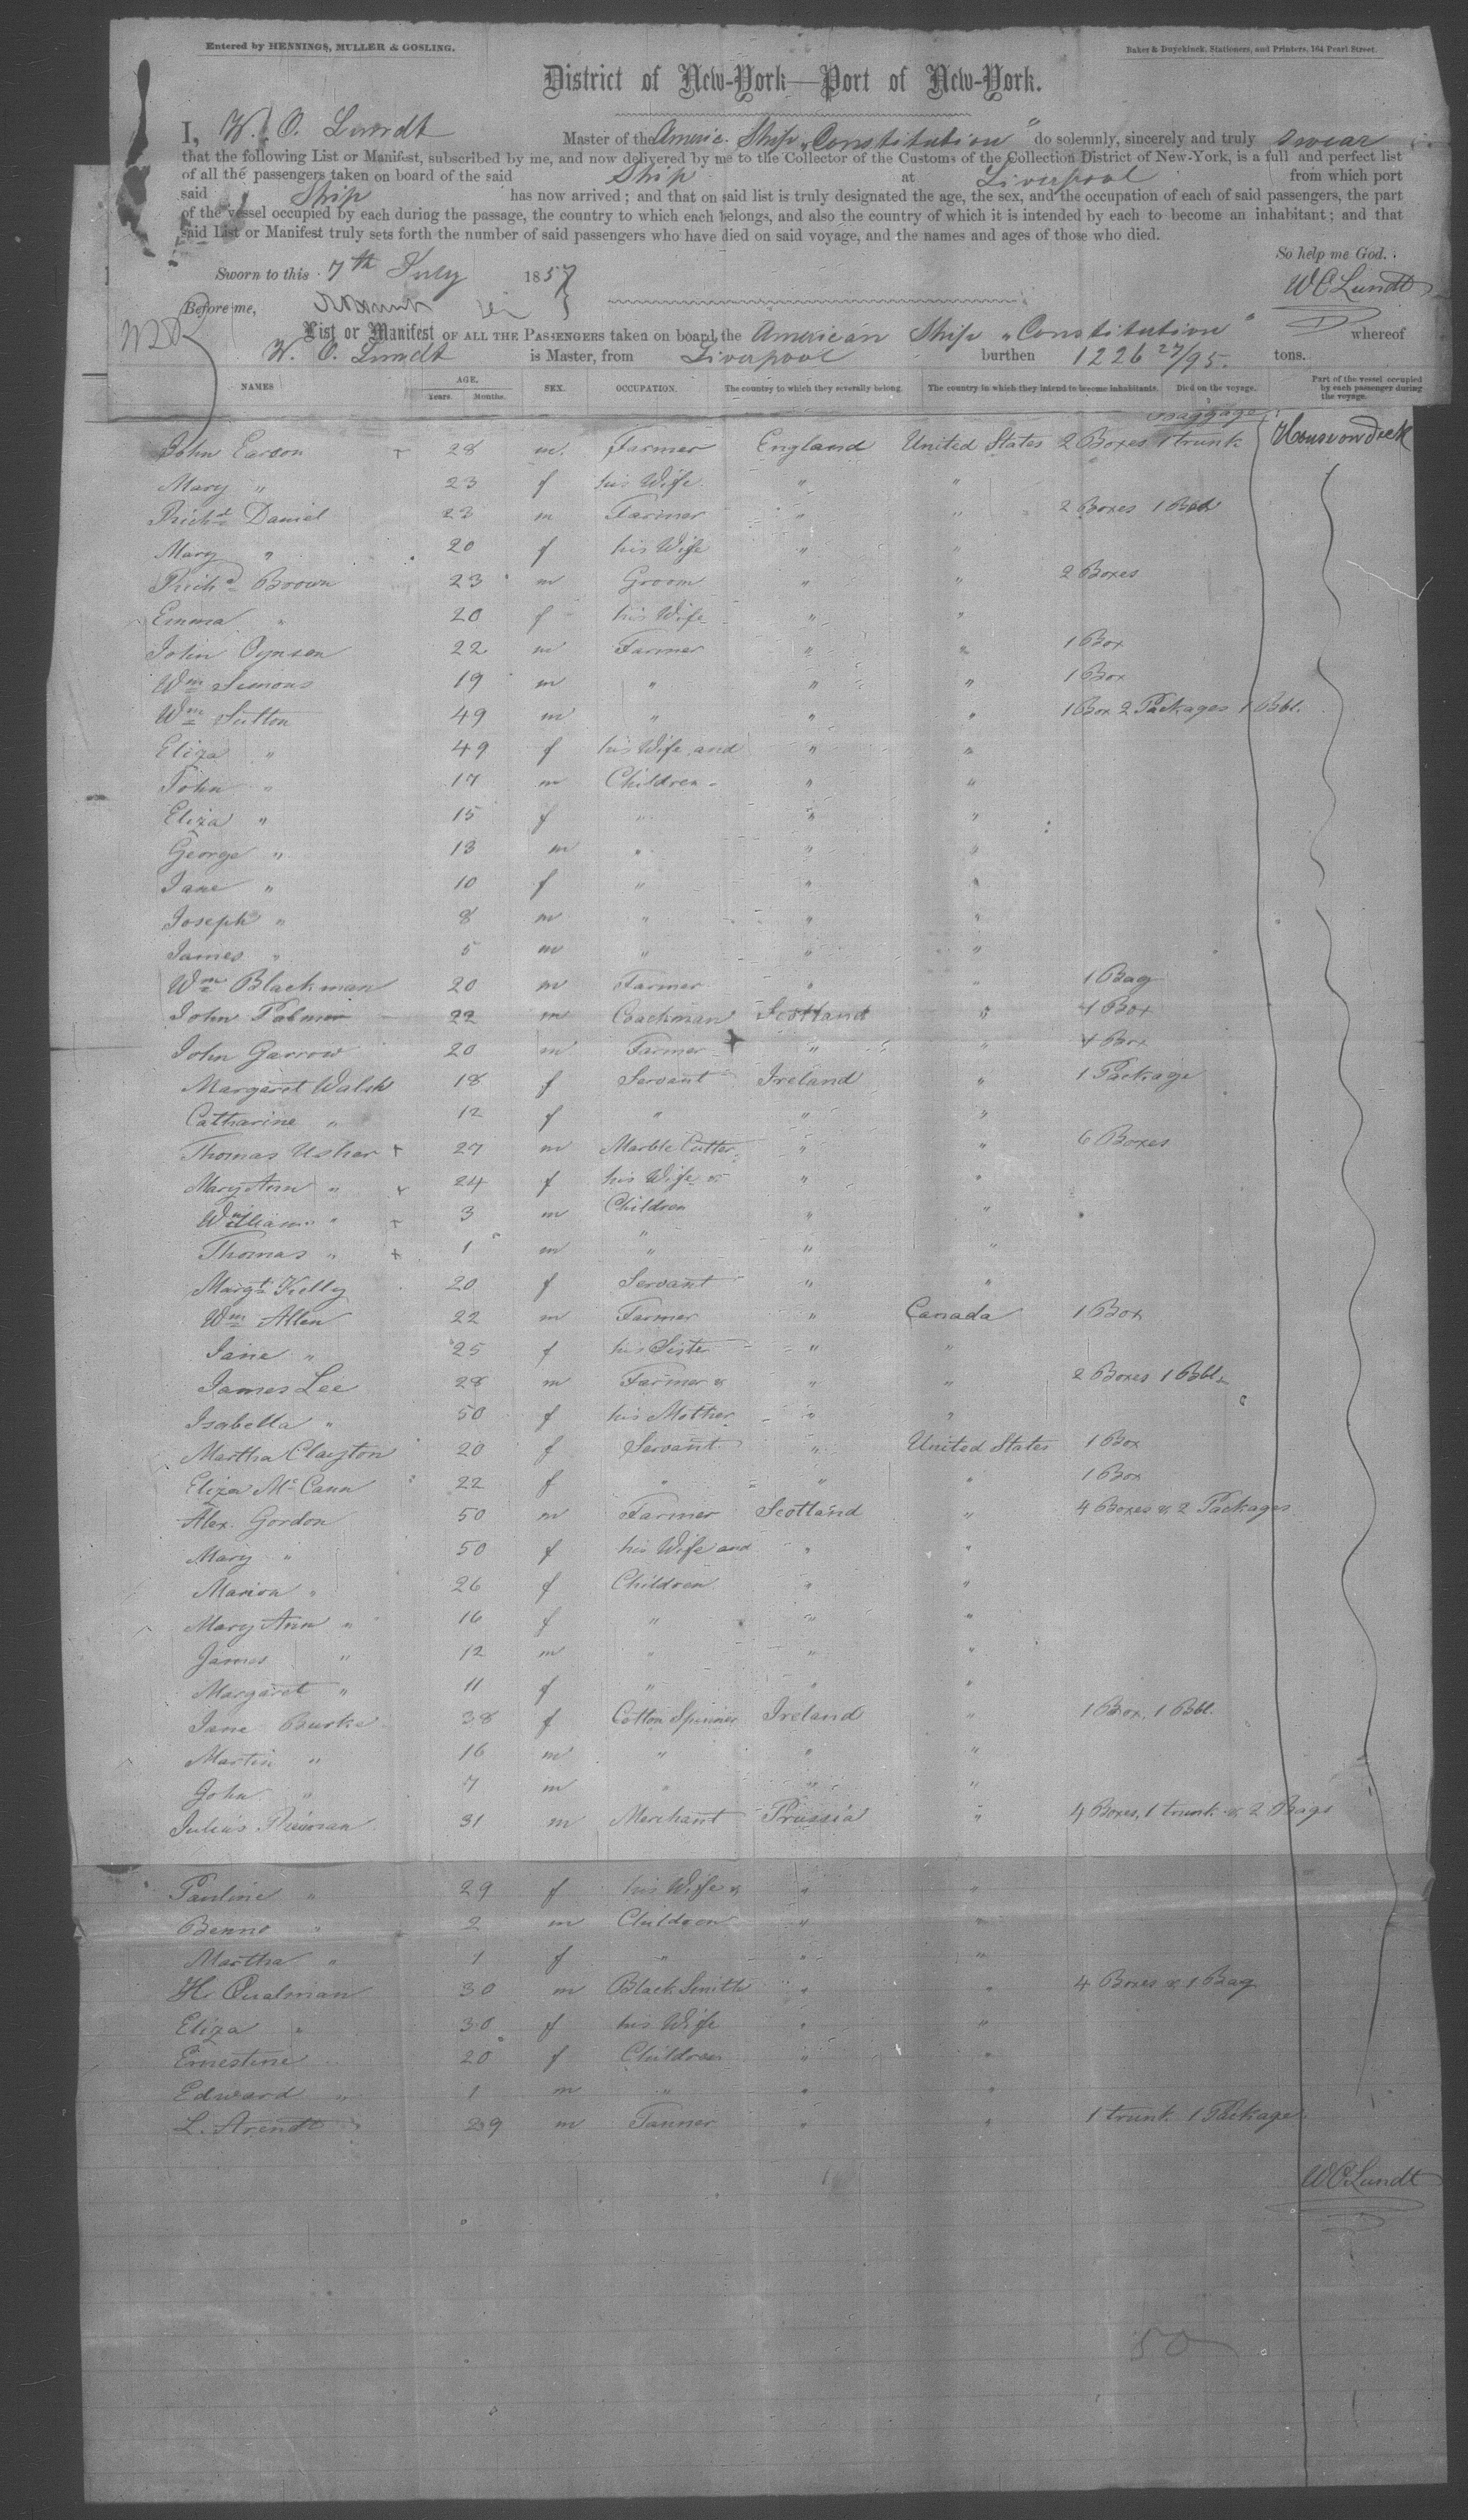 Entered by HENNINGS, MULLER & GOSLING.
Baker & Duyckinck, Stationers, and Printers, 164 Pearl Street.
District of New-York—Port of New-York.
I, W. O. Lundt Master of the Americ. Ship „Constitution" do solemnly, sincerely and truly swear
that the following List or Manifest, subscribed by me, and now delivered by me to the Collector of the Customs of the Collection District of New-York, is a full and perfect list
of all the passengers taken on board of the said Ship at Liverpool from which port
said Ship has now arrived; and that on said list is truly designated the age, the sex, and the occupation of each of said passengers, the part
of the vessel occupied by each during the passage, the country to which each belongs, and also the country of which it is intended by each to become an inhabitant; and that
said List or Manifest truly sets forth the number of said passengers who have died on said voyage, and the names and ages of those who died.
So help me God.
Sworn to this 7th July 1857
W O Lundt
Before me,
List or Manifest OF ALL THE PASSENGERS taken on board the American Ship „Constitution" whereof
W. O. Lundt is Master, from Liverpool burthen 1226 27/95. tons.
NAMES AGE. Years. Months. SEX. OCCUPATION. The country to which they severally belong. The country in which they intend to become inhabitants. Died on the voyage. Part of the vessel occupied by each passenger during the voyage.
Baggage
John Earson + 28 m. Farmer England United States 2 Boxes 1 trunk House on deck
Mary " 23 f his Wife " "
Richd Daniel 23 m Farmer " " 2 Boxes 1 Bed
Mary " 20 f his Wife " "
Richd Brown 23 m Groom " " 2 Boxes
Emma " 20 f his Wife " "
John Oynson 22 m Farmer " " 1 Box
Wm Simons 19 m " " " 1 Box
Wm Sutton 49 m " " " 1 Box 2 Packages 1 Bbl.
Eliza " 49 f his Wife and " "
John " 17 m Children " "
Eliza " 15 f " " "
George " 13 m " " "
Jane " 10 f " " "
Joseph " 8 m " " "
James " 5 m " " "
Wm Blackman 20 m Farmer " " 1 Bag
John Palmer 22 m Coachman Scotland " 1 Box
John Garrow 20 m Farmer " " 1 Box
Margaret Walsh 18 f Servant Ireland " 1 Package
Catharine " 12 f " " "
Thomas Usher + 27 m Marble Cutter " " 6 Boxes
Mary Ann " + 24 f his Wife & " "
William " + 3 m Children " "
Thomas " + 1 m " " "
Margt Kelly 20 f Servant " "
Wm Allen 22 m Farmer " Canada 1 Box
Jane " 25 f his Sister " "
James Lee 28 m Farmer & " " 2 Boxes 1 Bbl.
Isabella " 50 f his Mother " "
Martha Clayton 20 f Servant " United States 1 Box
Eliza McCann 22 f " " " 1 Box
Alex. Gordon 50 m Farmer Scotland " 4 Boxes & 2 Packages
Mary " 50 f his Wife and " "
Marion " 26 f Children " "
Mary Ann " 16 f " " "
James " 12 m " " "
Margaret " 11 f " " "
Jane Burke 38 f Cotton Spinner Ireland " 1 Box, 1 Bbl.
Martin " 16 m " " "
John " 7 m " " "
Julius 31 m Merchant Prussia " 4 Boxes, 1 trunk & 2 Bags
Pauline " 29 f his Wife & " "
Benno " 2 m Children " "
Martha " 1 f " " "
H. Qualman 30 m Black Smith " " 4 Boxes & 1 Bag
Eliza " 30 f his Wife " "
Ernestine 20 f Children " "
Edward " 1 m " " "
L. Arendt 29 m Tanner " " 1 trunk 1 Package
W O Lundt
50